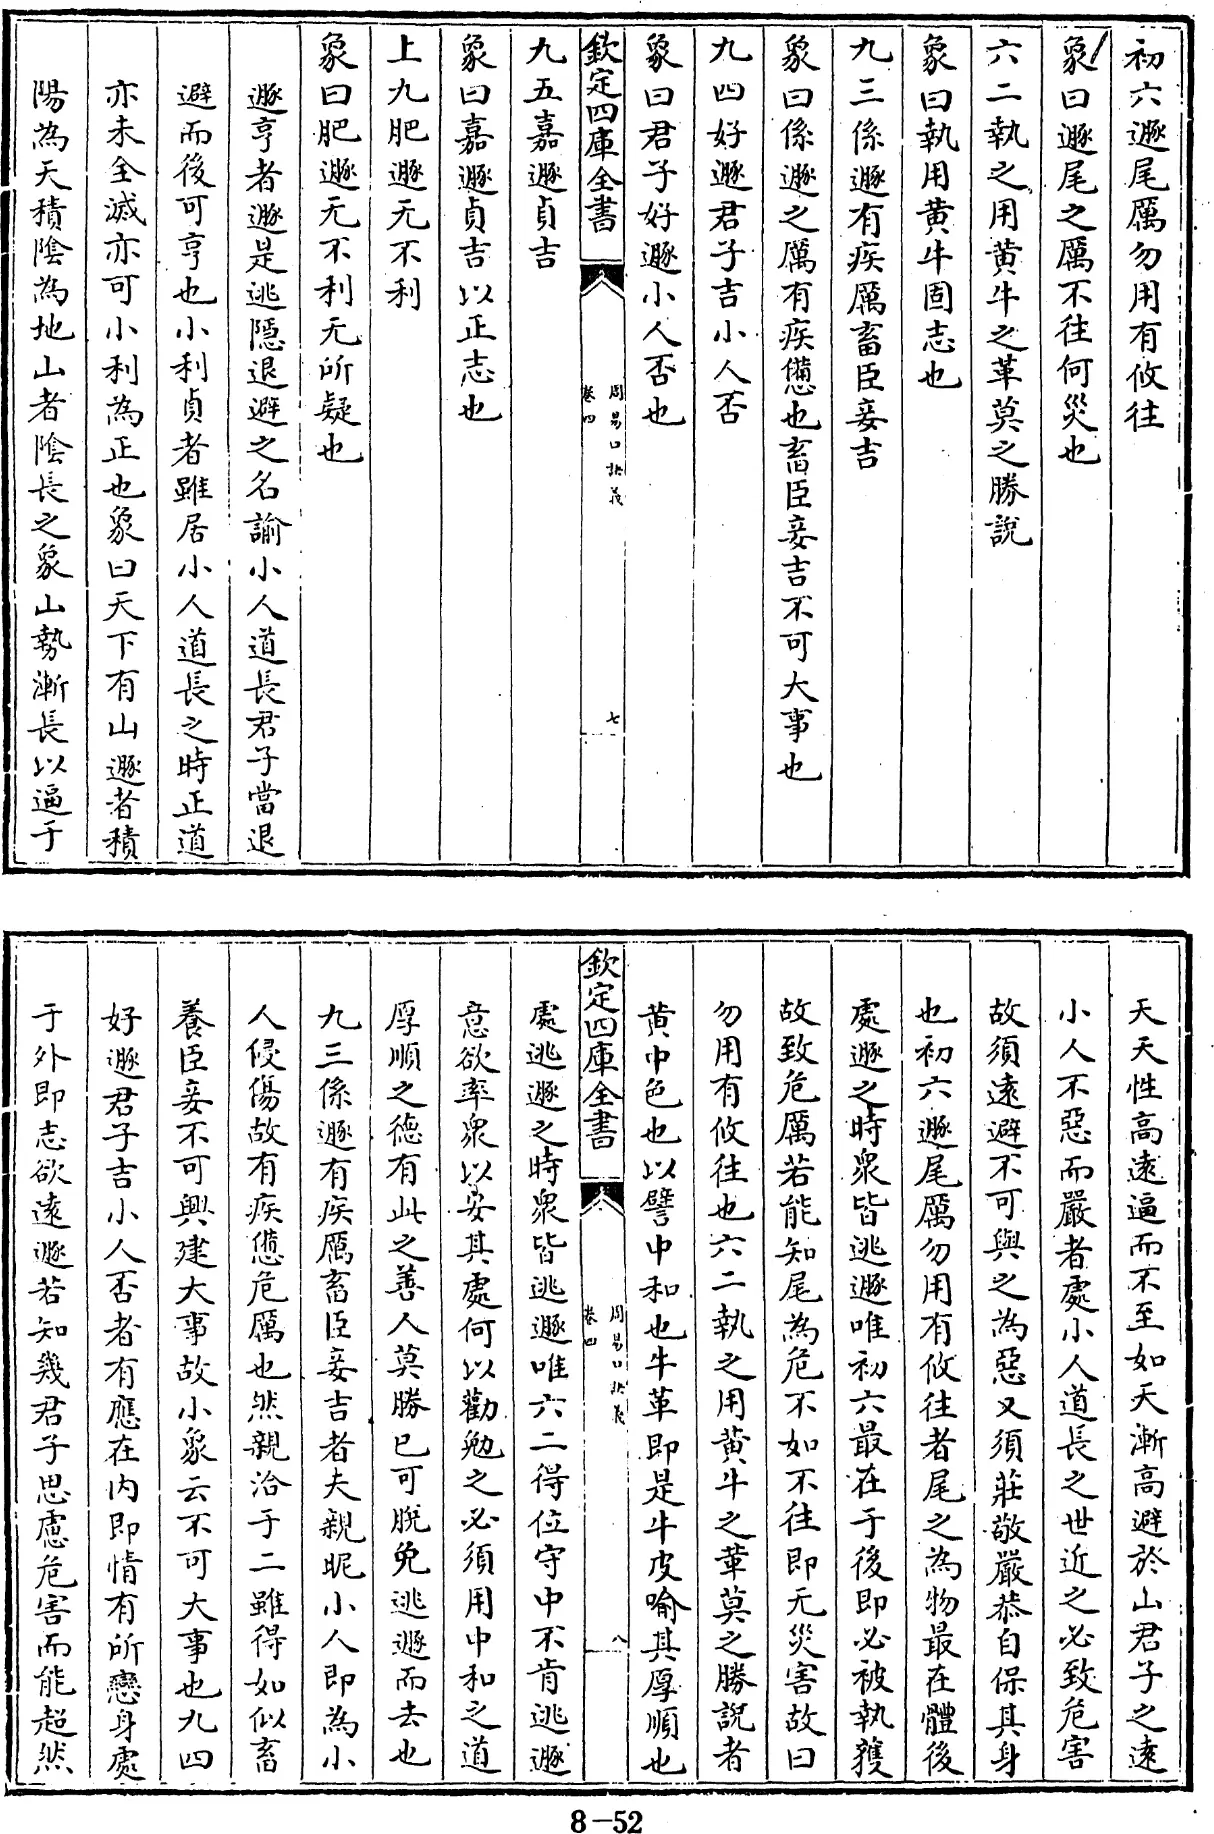 初六遯尾厲勿用有攸往
象曰遯尾之厲不往何災也
六二執之用黄牛之革莫之勝說
象曰執用黄牛固志也
九三係遯有疾厲畜臣妾吉
象曰係遯之厲有疾憊也畜臣妾吉不可大事也
九四好遯君子吉小人否
象曰君子好遯小人否也
欽定四庫全書
周易口訣義
卷四
七
九五嘉遯貞吉
象曰嘉遯貞吉以正志也
上九肥遯无不利
象曰肥遯无不利无所疑也
遯亨者遯是逃隱退避之名諭小人道長君子當退
避而後可亨也小利貞者雖居小人道長之時正道
亦未全滅亦可小利為正也象曰天下有山遯者積
陽為天積陰為地山者陰長之象山勢漸長以逼于
天天性高遠逼而不至如天漸高避於山君子之遠
小人不惡而嚴者處小人道長之世近之必致危害
故須遠避不可與之為惡又須莊敬嚴恭自保其身
也初六遯尾厲勿用有攸往者尾之為物最在體後
處遯之時衆皆逃遯唯初六最在于後即必被執獲
故致危厲若能知尾為危不如不往即无災害故曰
勿用有攸往也六二執之用黄牛之革莫之勝說者
黄中色也以譬中和也牛革即是牛皮喻其厚順也
欽定四庫全書
周易口訣義
卷四
八
處逃遯之時衆皆逃遯唯六二得位守中不肯逃遯
意欲率衆以安其處何以勸勉之必須用中和之道
厚順之德有此之善人莫勝已可脫免逃遯而去也
九三係遯有疾厲畜臣妾吉者夫親昵小人即為小
人侵傷故有疾憊危厲也然親洽于二雖得如似畜
養臣妾不可興建大事故小象云不可大事也九四
好遯君子吉小人否者有應在内即情有所戀身處
于外即志欲遠遯若知幾君子思慮危害而能超然
8-52